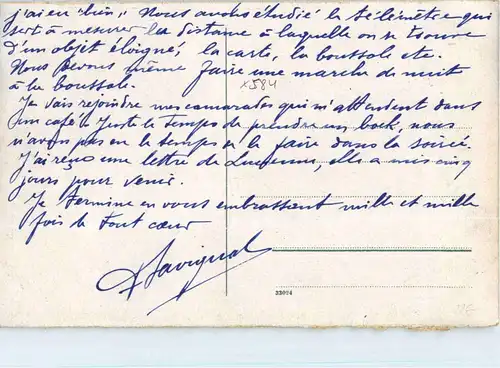 j'ai eu "bien". Nous avons étudié le télémètre qui
sert à mesurer la distance à laquelle on se trouve
d'un objet éloigné, la carte, la boussole etc.
Nous devons même faire une marche de nuit
à la boussole.
x584
Je vais rejoindre mes camarades qui m'attendent dans
un café. Juste le temps de prendre un bock, nous
n'avons pas eu le temps de le faire dans la soirée.
J'ai reçu une lettre de Lucienne, elle a mis cinq
jours pour venir.
Je termine en vous embrassant mille et mille
fois de tout cœur
Savignal
33094